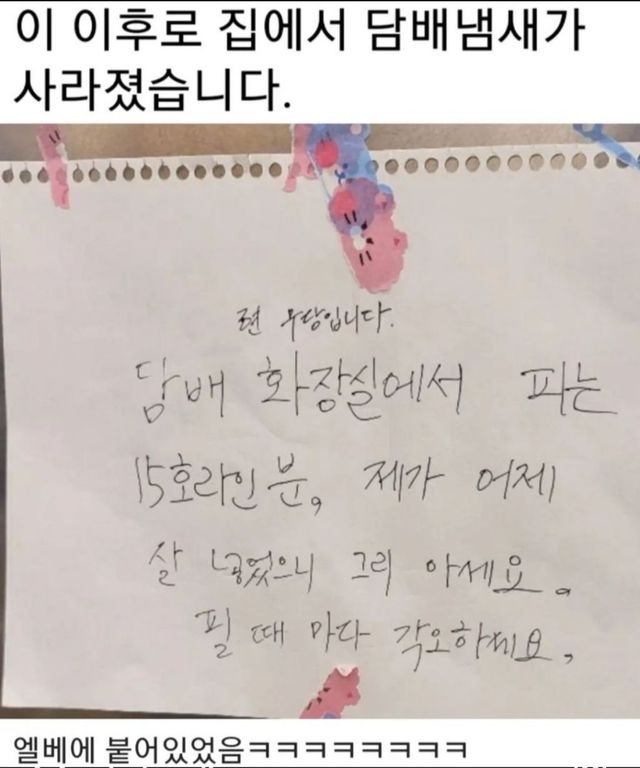 이 이후로 집에서 담배냄새가
사라졌습니다.
무당입니다.
담배 화장실에서 피는
15호라인 분, 제가 어제
살 넣었으니 그리 아세요.
필 때 마다 각오하세요,
엘베에 붙어있었음ㅋㅋㅋㅋㅋㅋㅋㅋㅋ